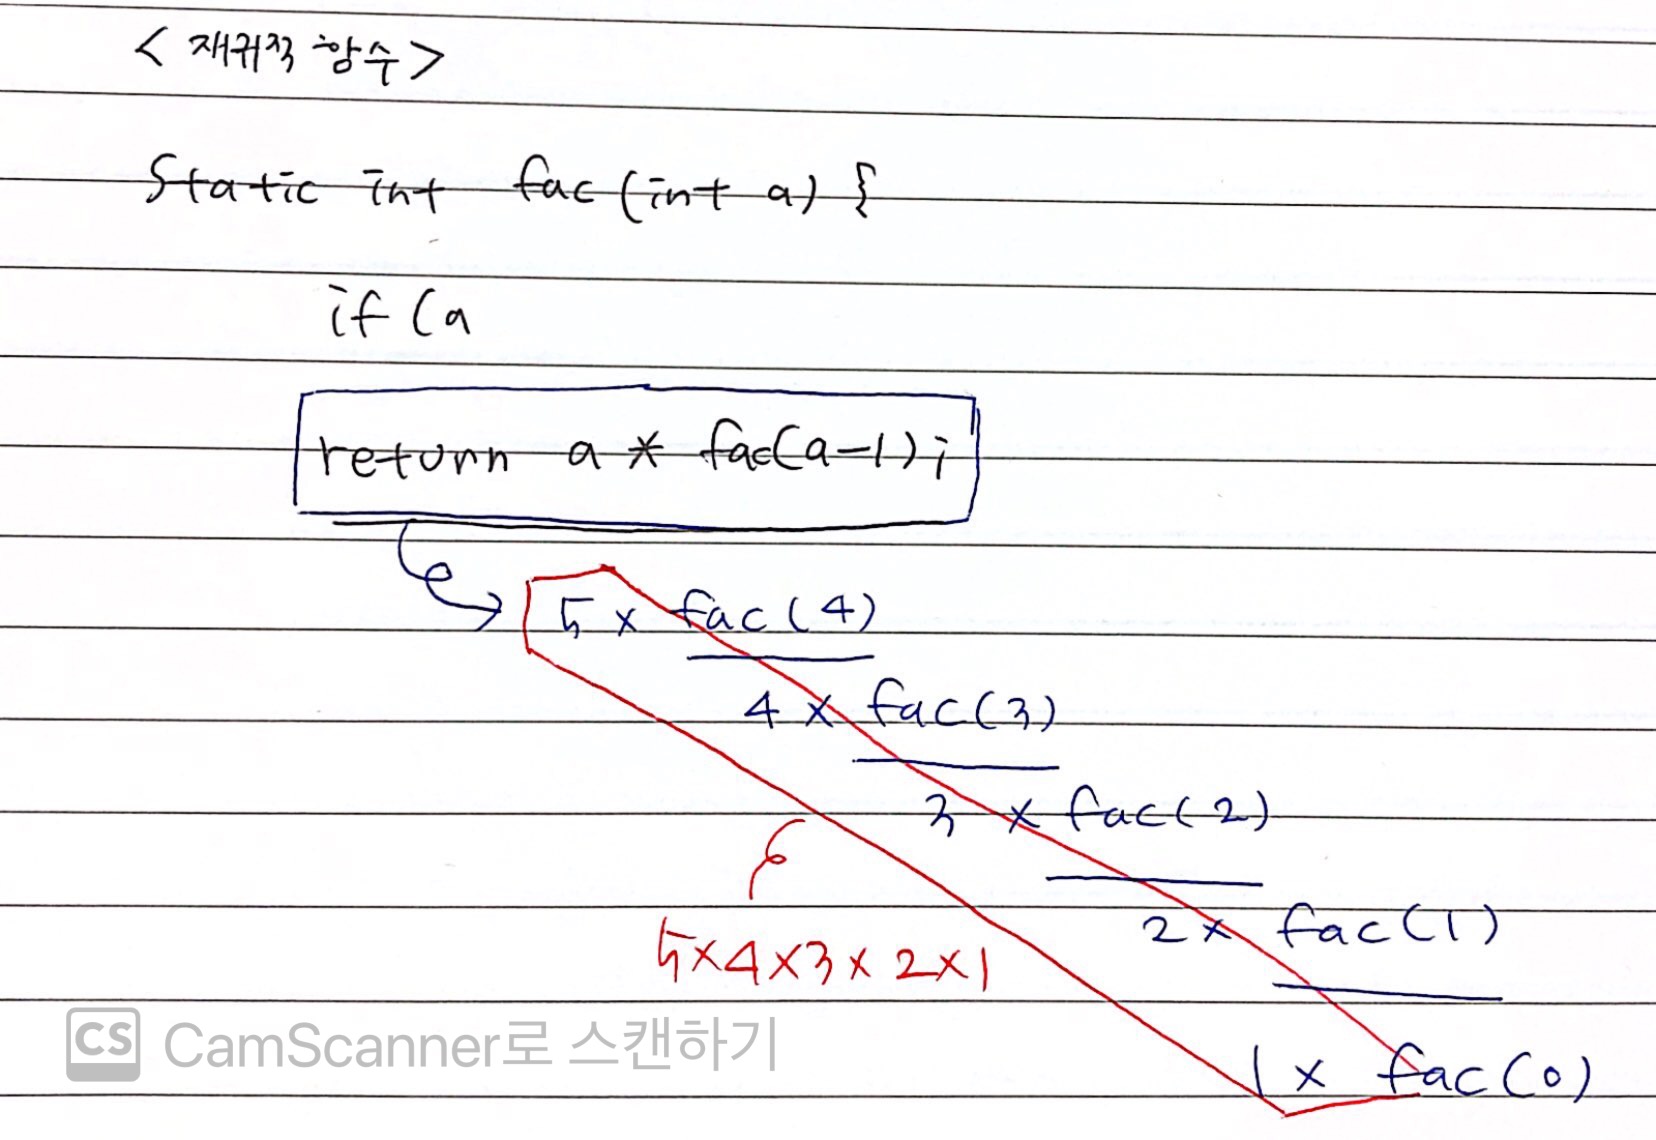 < 재귀적 함수 >
Static int fac (int a) {
if (a
return a * fac(a-1);
5 x fac(4)
4 x fac(3)
3 x fac(2)
2 x fac(1)
5x4x3x2x1
1 x fac(0)
CS CamScanner로 스캔하기